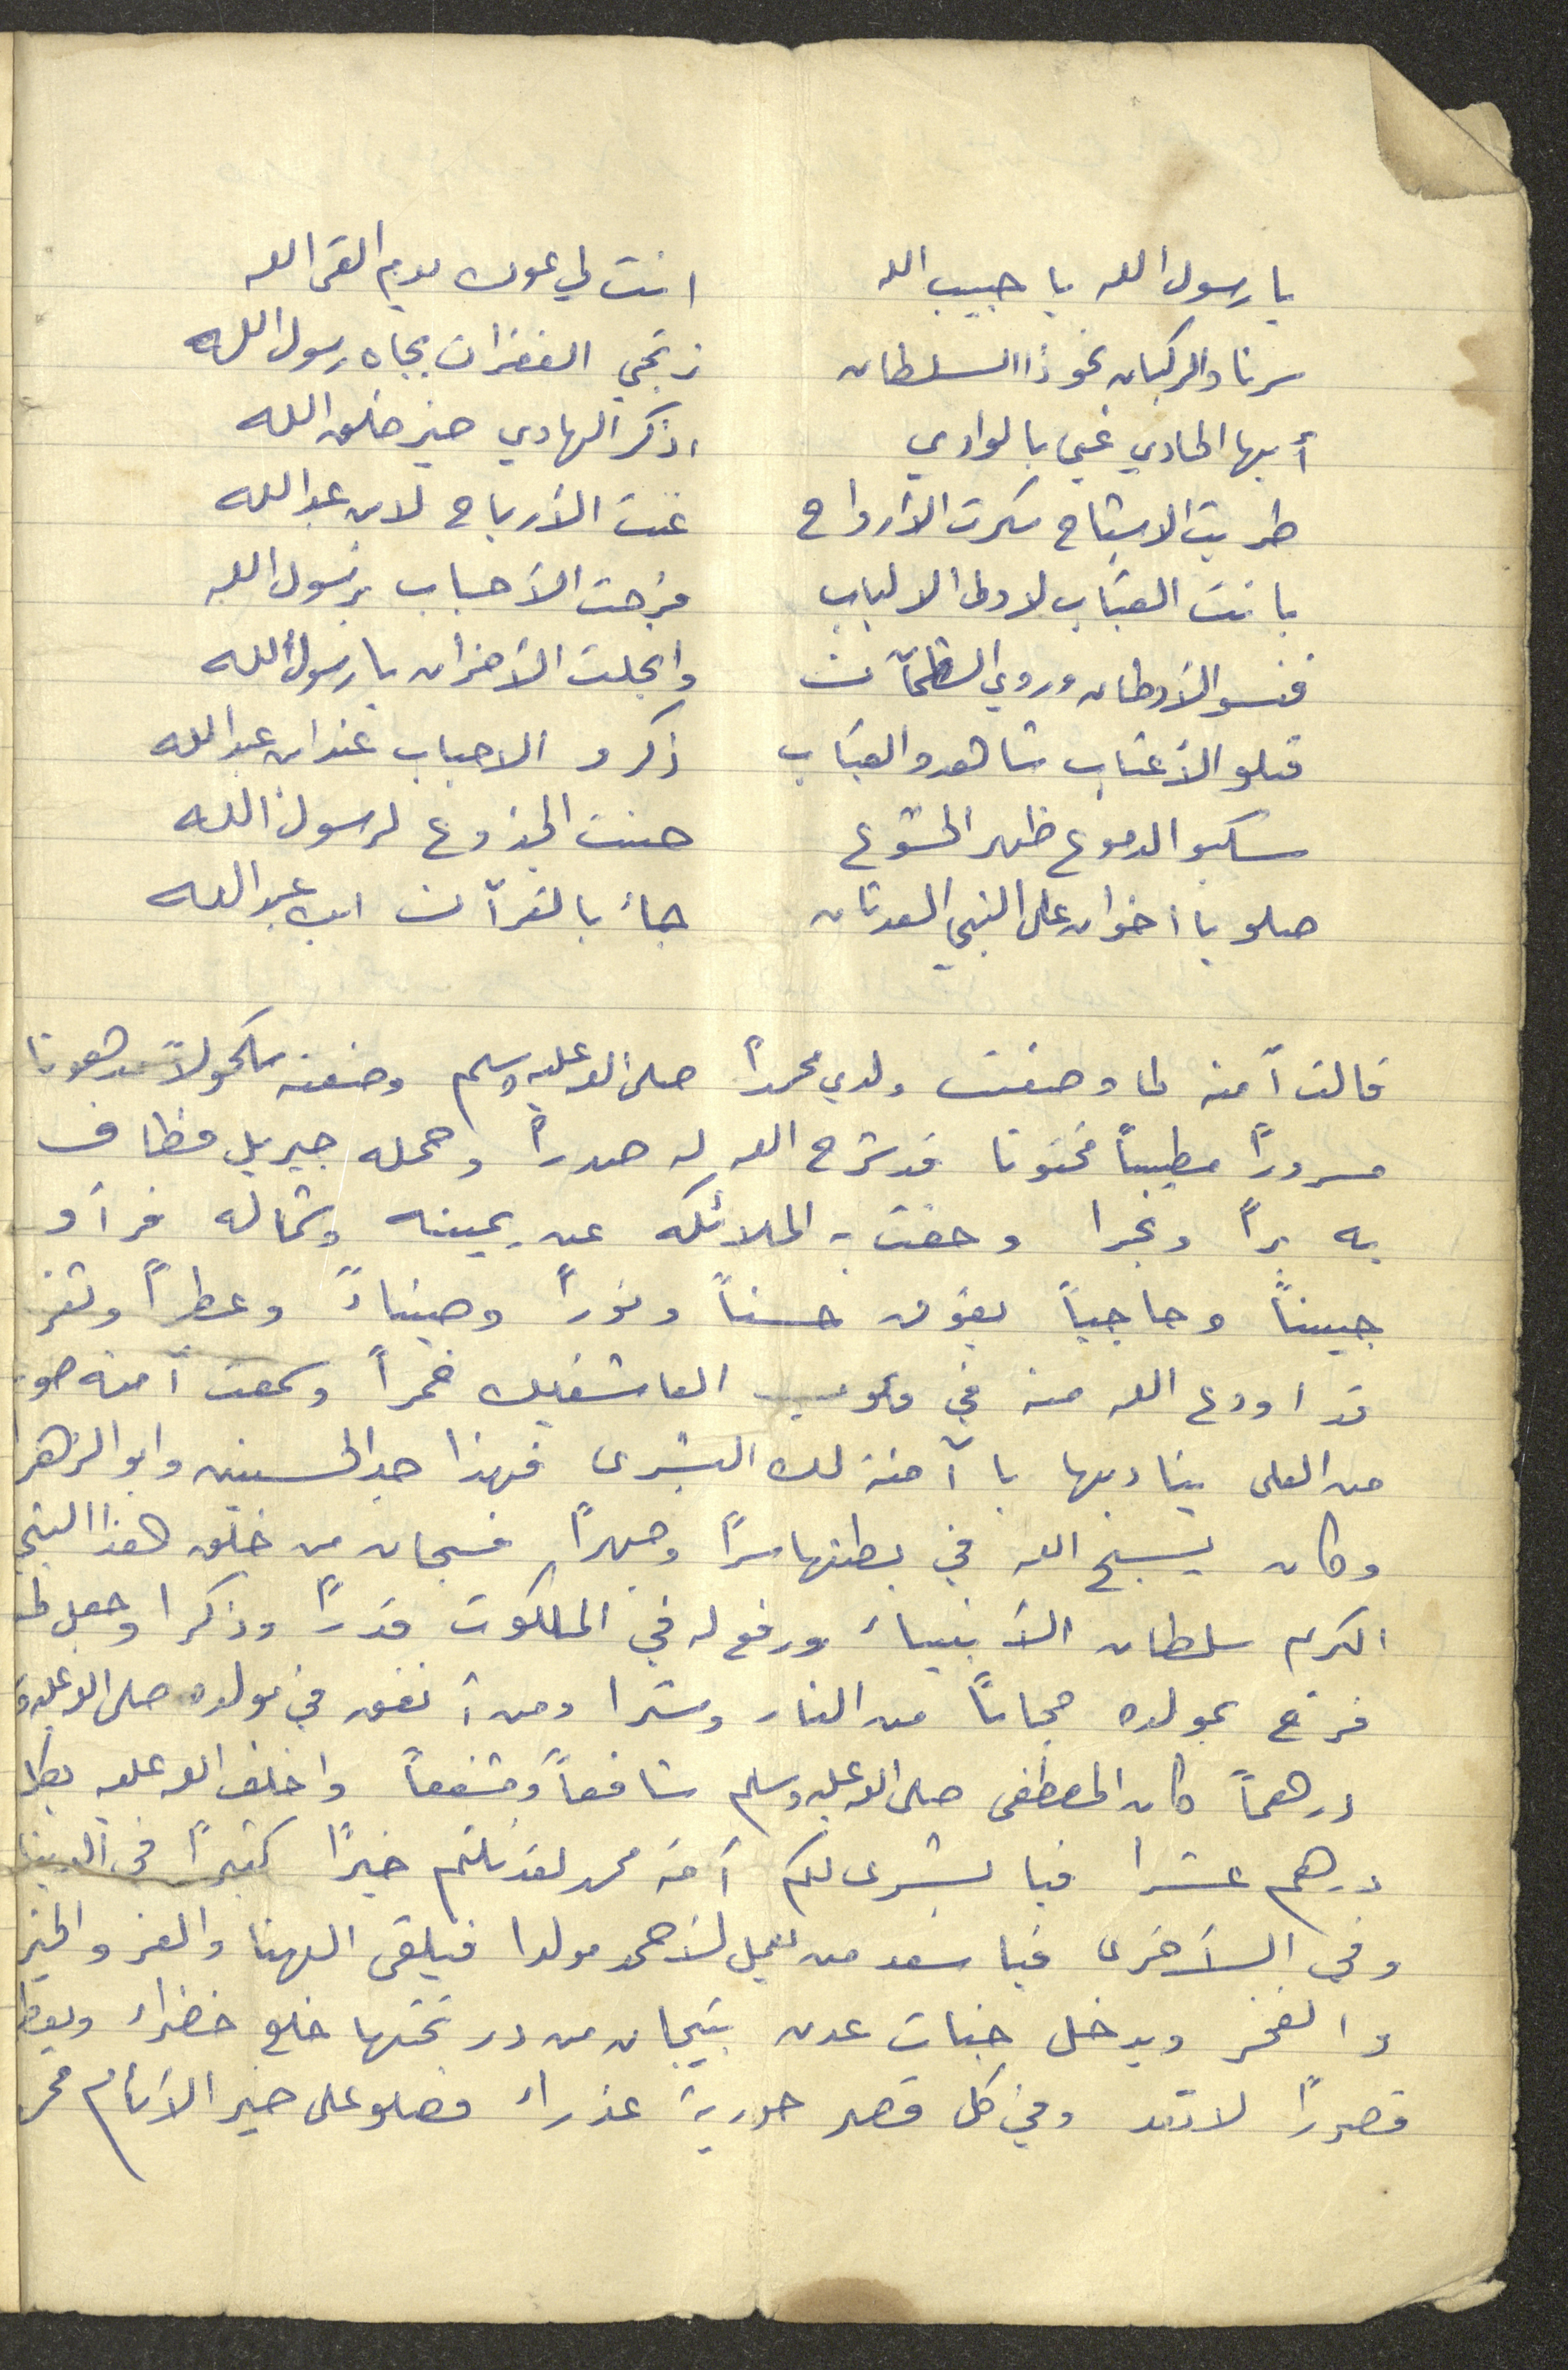 يا رسول الله يا حبيب الله انت لي عون يوم القى الله
سرنا والركبان نحو ذا السلطان نرتجي الغفران بجاه رسول الله
أيها الحادي غني بالوادي اذكر الهادي خير خلق الله
طربت الاشباح سكرت الأرواح غنت الأرياح لابن عبدالله
بانت القباب لاولى الالباب فرحت الأحباب برسول الله
فنسو الأوطان وروي الظمآن وانجلت الأحزان يا رسول الله
قبلو الأعتاب شاهدو القباب ذكرو الاحباب عند ابن عبدالله
سكبو الدموع ظهر الخشوع حنت الجذوع لرسول الله
صلو يا اخوان على النبي العدنان جاء بالقرآن ابن عبدالله
قالت آمنه لما وضعت ولدي محمداً صلى الله عليه وسلم وضعته مكحولاً مدهونا
مسروراً مطيباً مختونا قد شرح الله له صدراً وحمله جبريل فطاف
به براً وبحرا وحفت به الملائكه عن يمينه وشماله فرأو
جبيناً وحاجباً يفوق حسناً ونوراً وضياءً وعطراً وثغر
قد اودع الله منه في قلوب العاشقين خمراً وسمعت آمنه صو
من العلى يناديها يا آمنة لك البشرى فهذا جد الحسين وابو الزهرا
وكان يسبح الله في بطنها سراً وجهراً فسبحان من خلق هذا النبي
الكرم سلطان الأنبياء ورفع له في الملكوت قدراً وذكرا وجعل لمن
فرح بمولده حجاباً من النار وسترا ومن أنفق في مولده صلى الله عليه و
درهماً كان المصطفى صلى الله عليه وسلم شافعاً ومشفعاً واخلف الله عليه بكل
درهم عشرا فيا بشرى لكم أمة محمد لقد نلتم خيراً كثيراً في الدينا
وفي الأخرى فيا سعد من يعمل لأحمد مولدا فيلقى الهنا والعز والخير
والفخر ويدخل جنات عدن بتيجان من در تحتها خلع خضراء ويعطا
قصوراً لا تعد وفي كل قصر حورية عذراء فصلو على خير الأنام محمد